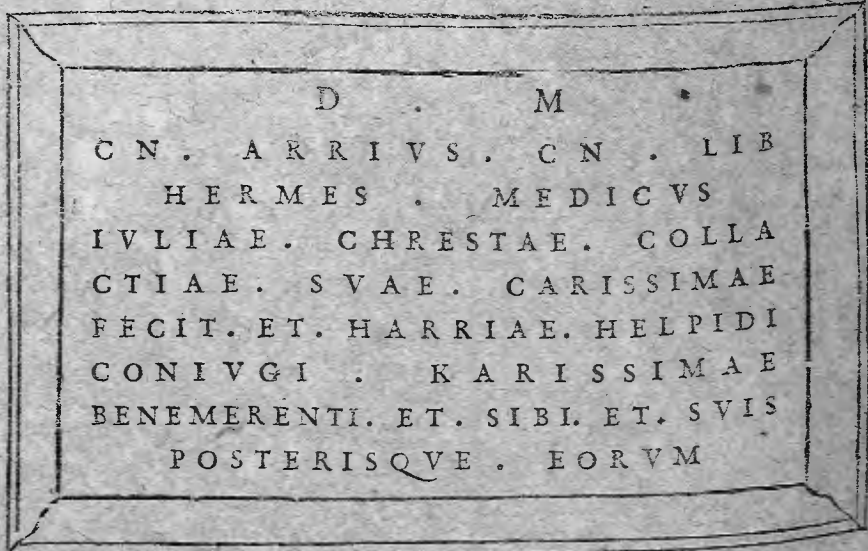 D . M
CN . ARRIVS . CN . LIB
HERMES . MEDICVS
IVLIAE. CHRESTAE. COLLA
CTIAE. SVAE. CARISSIMAE
FECIT. ET. HARRIAE. HELPIDI
CONIVGI . KARISSIMAE
BENEMERENTI. ET. SIBI. ET. SVIS
POSTERISQVE . EORVM